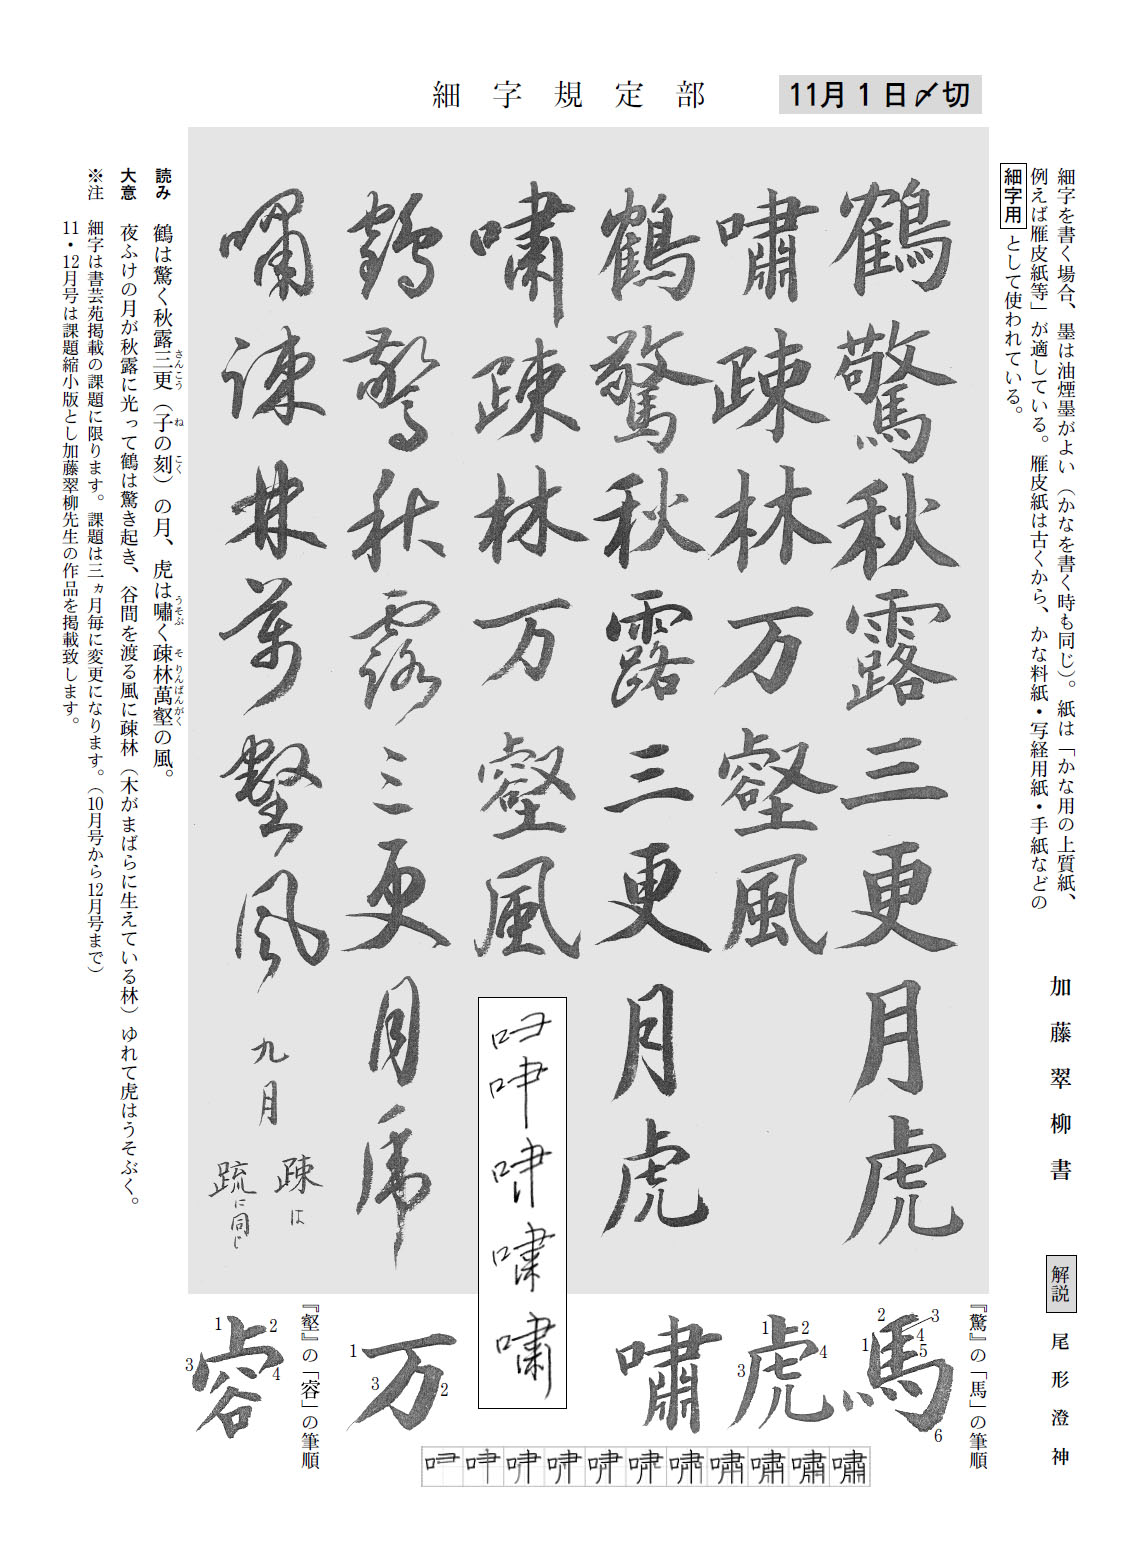 細字規定部
11月1日〆切
細字を書く場合、墨は油煙墨がよい（かなを書く時も同じ）。紙は「かな用の上質紙、
例えば雁皮紙等」が適している。雁皮紙は古くから、かな料紙・写経用紙・手紙などの
細字用として使われている。
加藤翠柳書
解説 尾形澄神
鶴驚秋露三更月虎
嘯疎林万壑風
鶴驚秋露三更月虎
嘯疎林万壑風
鶴驚秋露三更月虎
嘯疎林萬壑風
九月
疎は
疏に同じ
読み 鶴は驚く秋露三更（子の刻）の月、虎は嘯く疎林萬壑の風。
さんこう ね こく うそぶ そりんばんがく
大意 夜ふけの月が秋露に光って鶴は驚き起き、谷間を渡る風に疎林（木がまばらに生えている林）ゆれて虎はうそぶく。
※注 細字は書芸苑掲載の課題に限ります。課題は三ヵ月毎に変更になります。（10月号から12月号まで）
11・12月号は課題縮小版とし加藤翠柳先生の作品を掲載致します。
『驚』の「馬」の筆順
馬 1 2 3 4 5 6
虎 1 2 3 4
嘯
嘯
万 1 2 3
『壑』の「容」の筆順
1 2 3 4
嘯